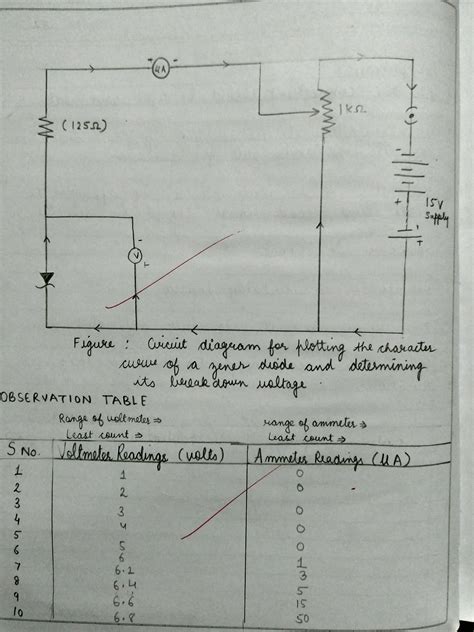 - μA -
(125Ω)
1KΩ
- V +
-
+
15V
Supply
-
+
Figure : Circuit diagram for plotting the character
curve of a zener diode and determining
its breakdown voltage.
OBSERVATION TABLE
Range of voltmeter ⇒
range of ammeter ⇒
Least count ⇒
Least count ⇒
S No. Voltmeter Readings (volts) Ammeter Readings (μA)
1 1 0
2 2 0
3 3 0
4 4 0
5 5 0
6 6 1
7 6.2 3
8 6.4 5
9 6.6 15
10 6.8 50